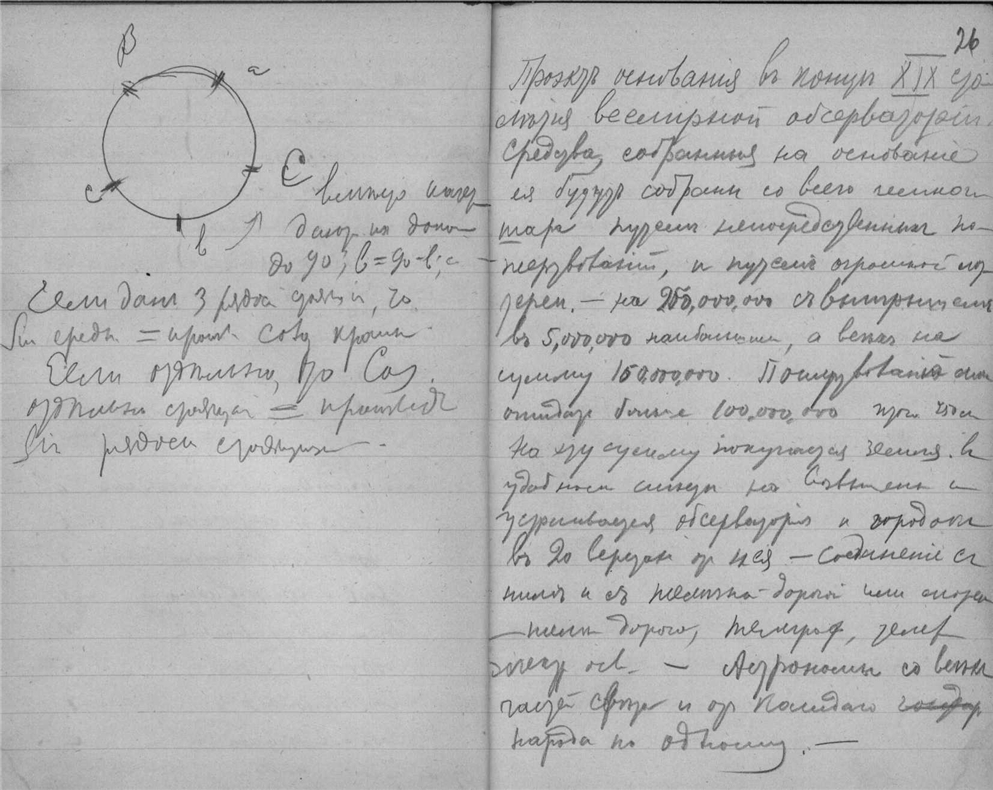 B
a
C
с
b
вместо катет
дают их допо-
до 90; b = 90-b;
Если дан 3 рядом
Sin средн =
Если отдельно, то Cos.
отдельно =
Sin рядом
26
Проэктъ основанія въ концѣ XIX сто-
лѣтія всемірной обсерваторіи.
Средства, собранныя на основаніе
ея будутъ собраны со всего земного
шара путемъ непосредственныхъ по-
жертвованій, и путемъ огромной ло-
тереи. — на 250,000,000 съ выигрышемъ
въ 5,000,000 наибольшимъ, а всѣхъ на
сумму 150.000,000. Пожертвованій
больше 100,000,000
На эту сумму покупается земля. въ
удобномъ мѣстѣ на
устраивается обсерваторія и городокъ
въ 20 верстахъ от нея — Соединеніе съ
нимъ и съ желѣзно-дорогой или
дорога, телеграф, телеф
электр осв. — Астрономы со всѣхъ
частей свѣта и от каждаго
народа по одному. —